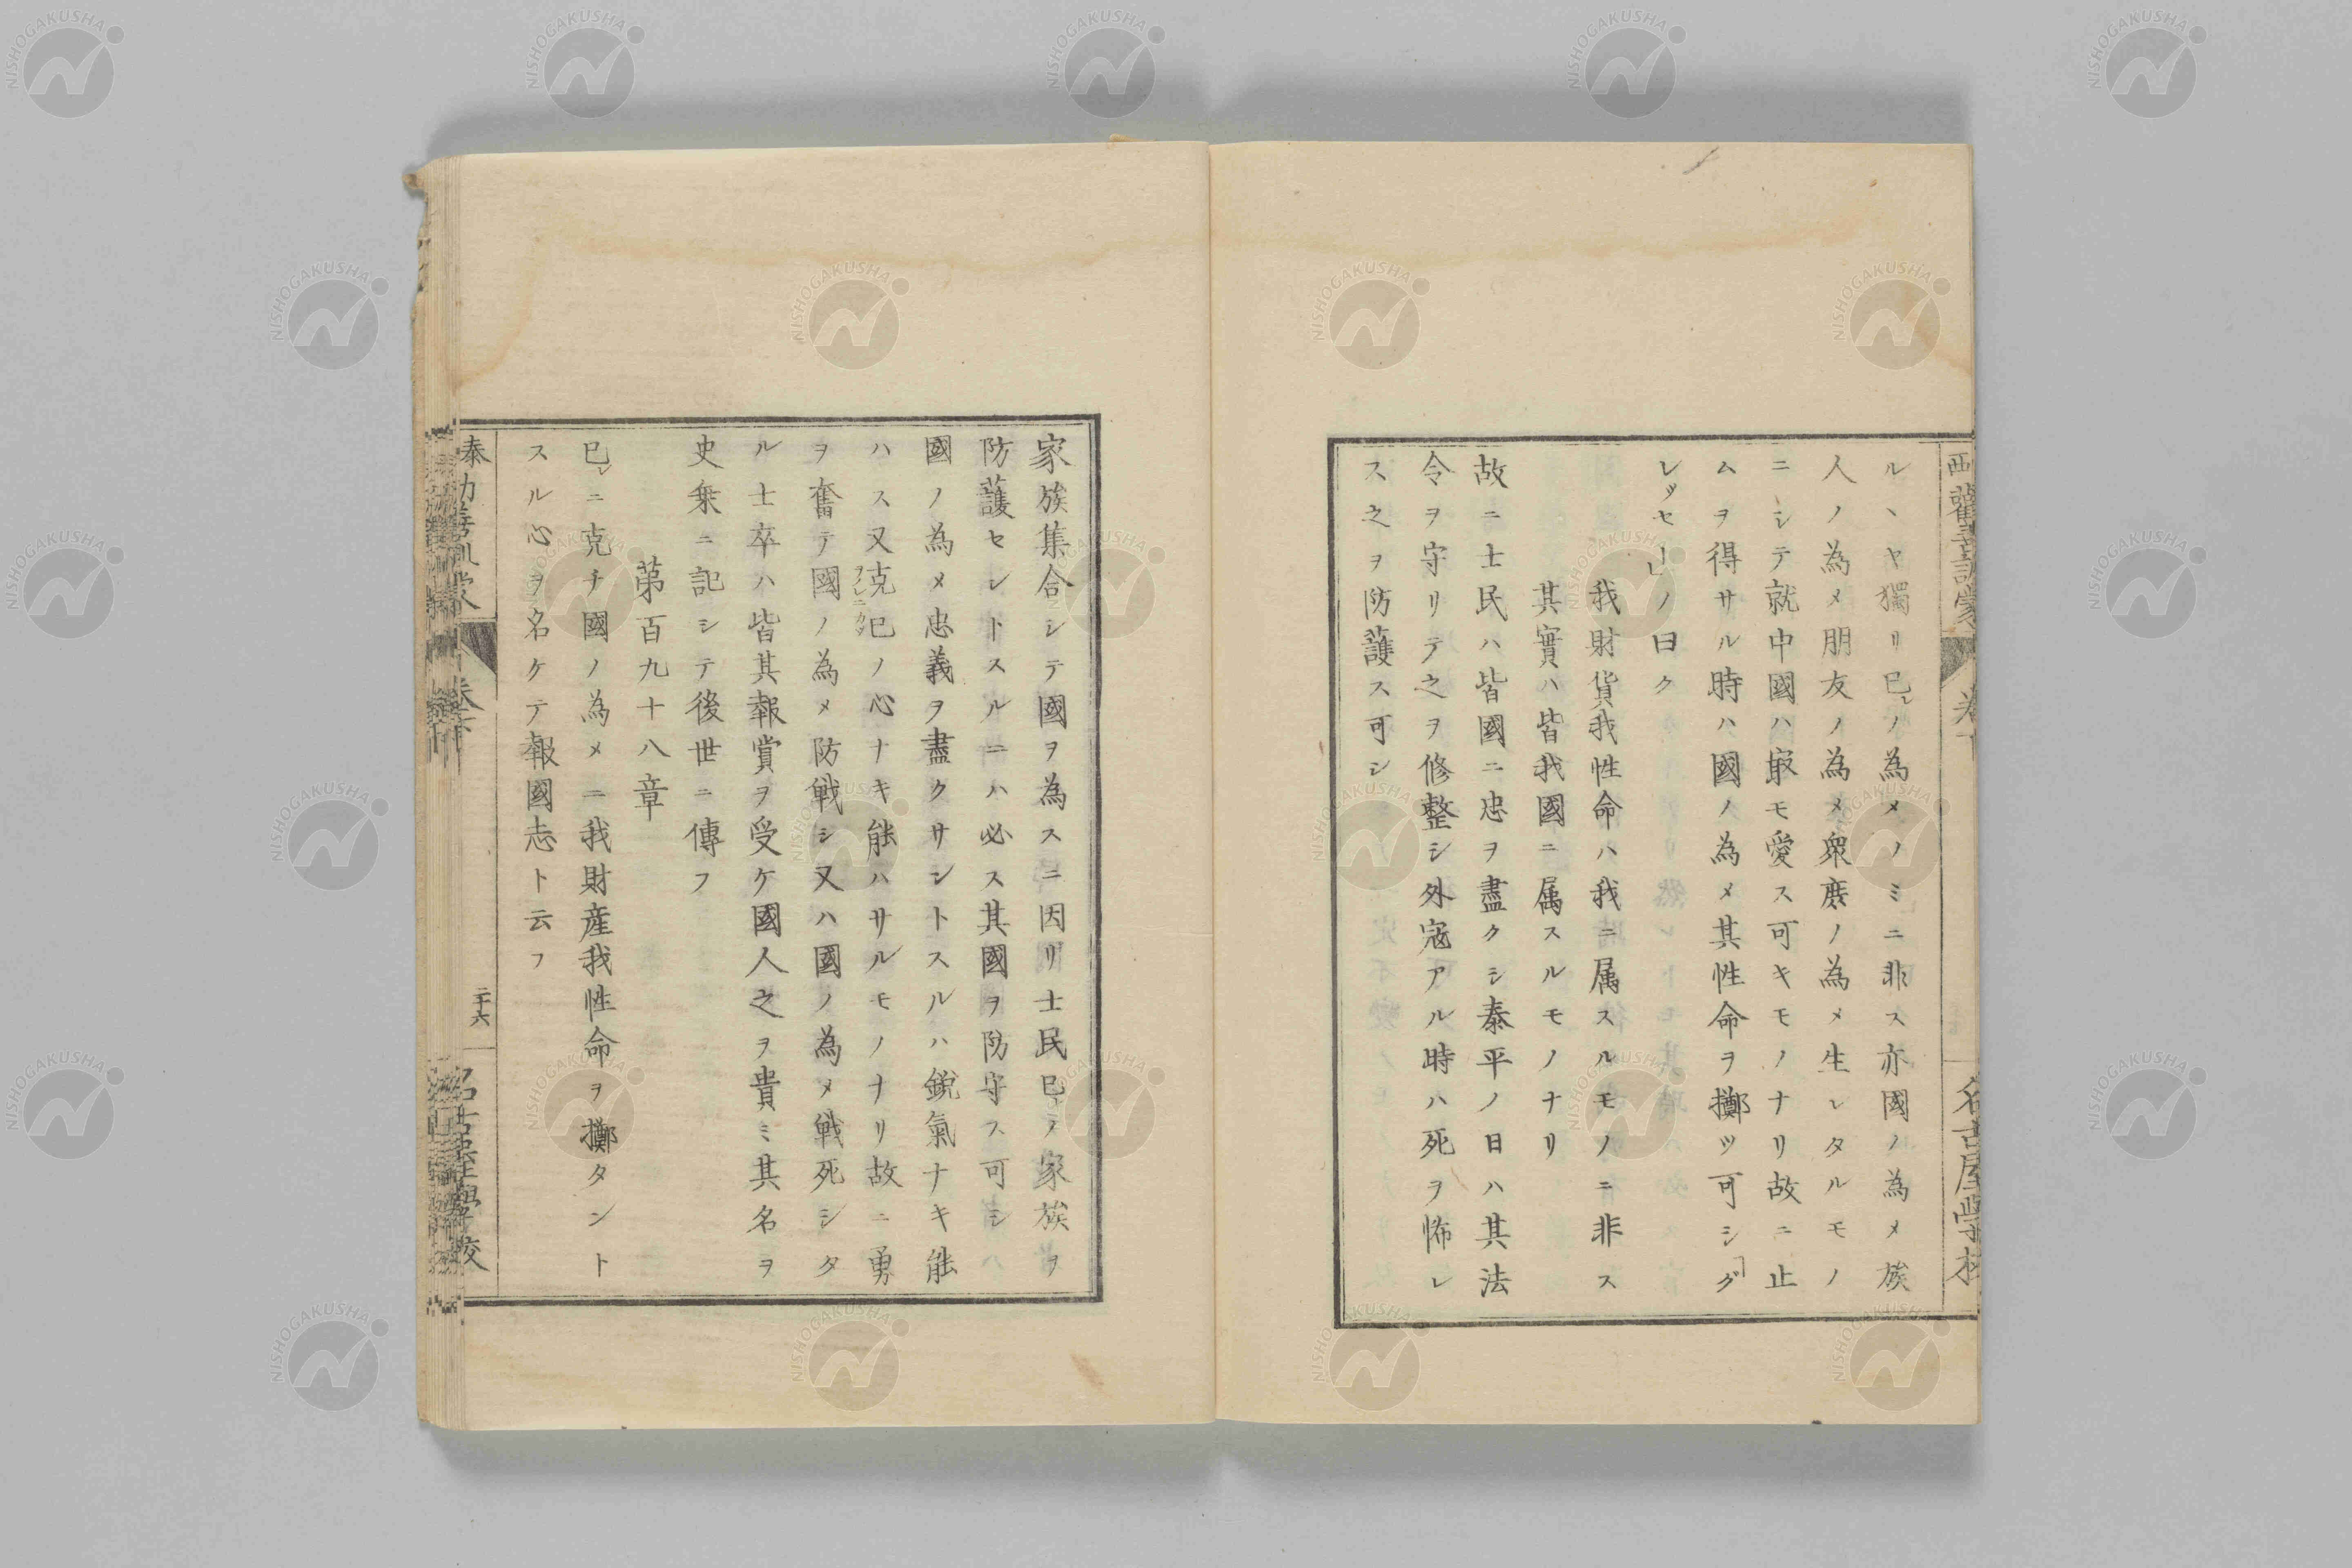 ルヽヤ獨リ已レノ為メノミニ非ス亦國ノ為メ族
人ノ為メ朋友ノ為メ衆庶ノ為メ生レタルモノ
ニシテ就中國ハ㝡モ愛ス可キモノナリ故ニ止
ムヲ得サル時ハ國ノ為メ其性命ヲ擲ツ可シ「グ
レッセー」ノ曰ク
我財貨我性命ハ我ニ属スルモノニ非ス
其實ハ皆我國ニ属スルモノナリ
故ニ士民ハ皆國ニ忠ヲ盡クシ泰平ノ日ハ其法
令ヲ守リテ之ヲ修整シ外寇アル時ハ死ヲ怖レ
ス之ヲ防護ス可シ
名古屋學校
家族集合シテ國ヲ為スニ因リ士民已レノ家族ヲ
防護セントスルニハ必ス其國ヲ防守ス可シ
國ノ為メ忠義ヲ盡クサントスルハ銳氣ナキ能
ハス又克已ノ心ナキ能ハサルモノナリ故ニ勇
ヲノレニカツ
ヲ奮テ國ノ為メ防戦シ又ハ國ノ為メ戦死シタ
ル士卒ハ皆其報賞ヲ受ケ國人之ヲ貴ミ其名ヲ
史乗ニ記シテ後世ニ傳フ
第百九十八章
已レニ克チ國ノ為メニ我財産我性命ヲ擲タント
スル心ヲ名ケテ報國志ト云フ
泰西勸善訓蒙
二十六
NISHOGAKUSHA